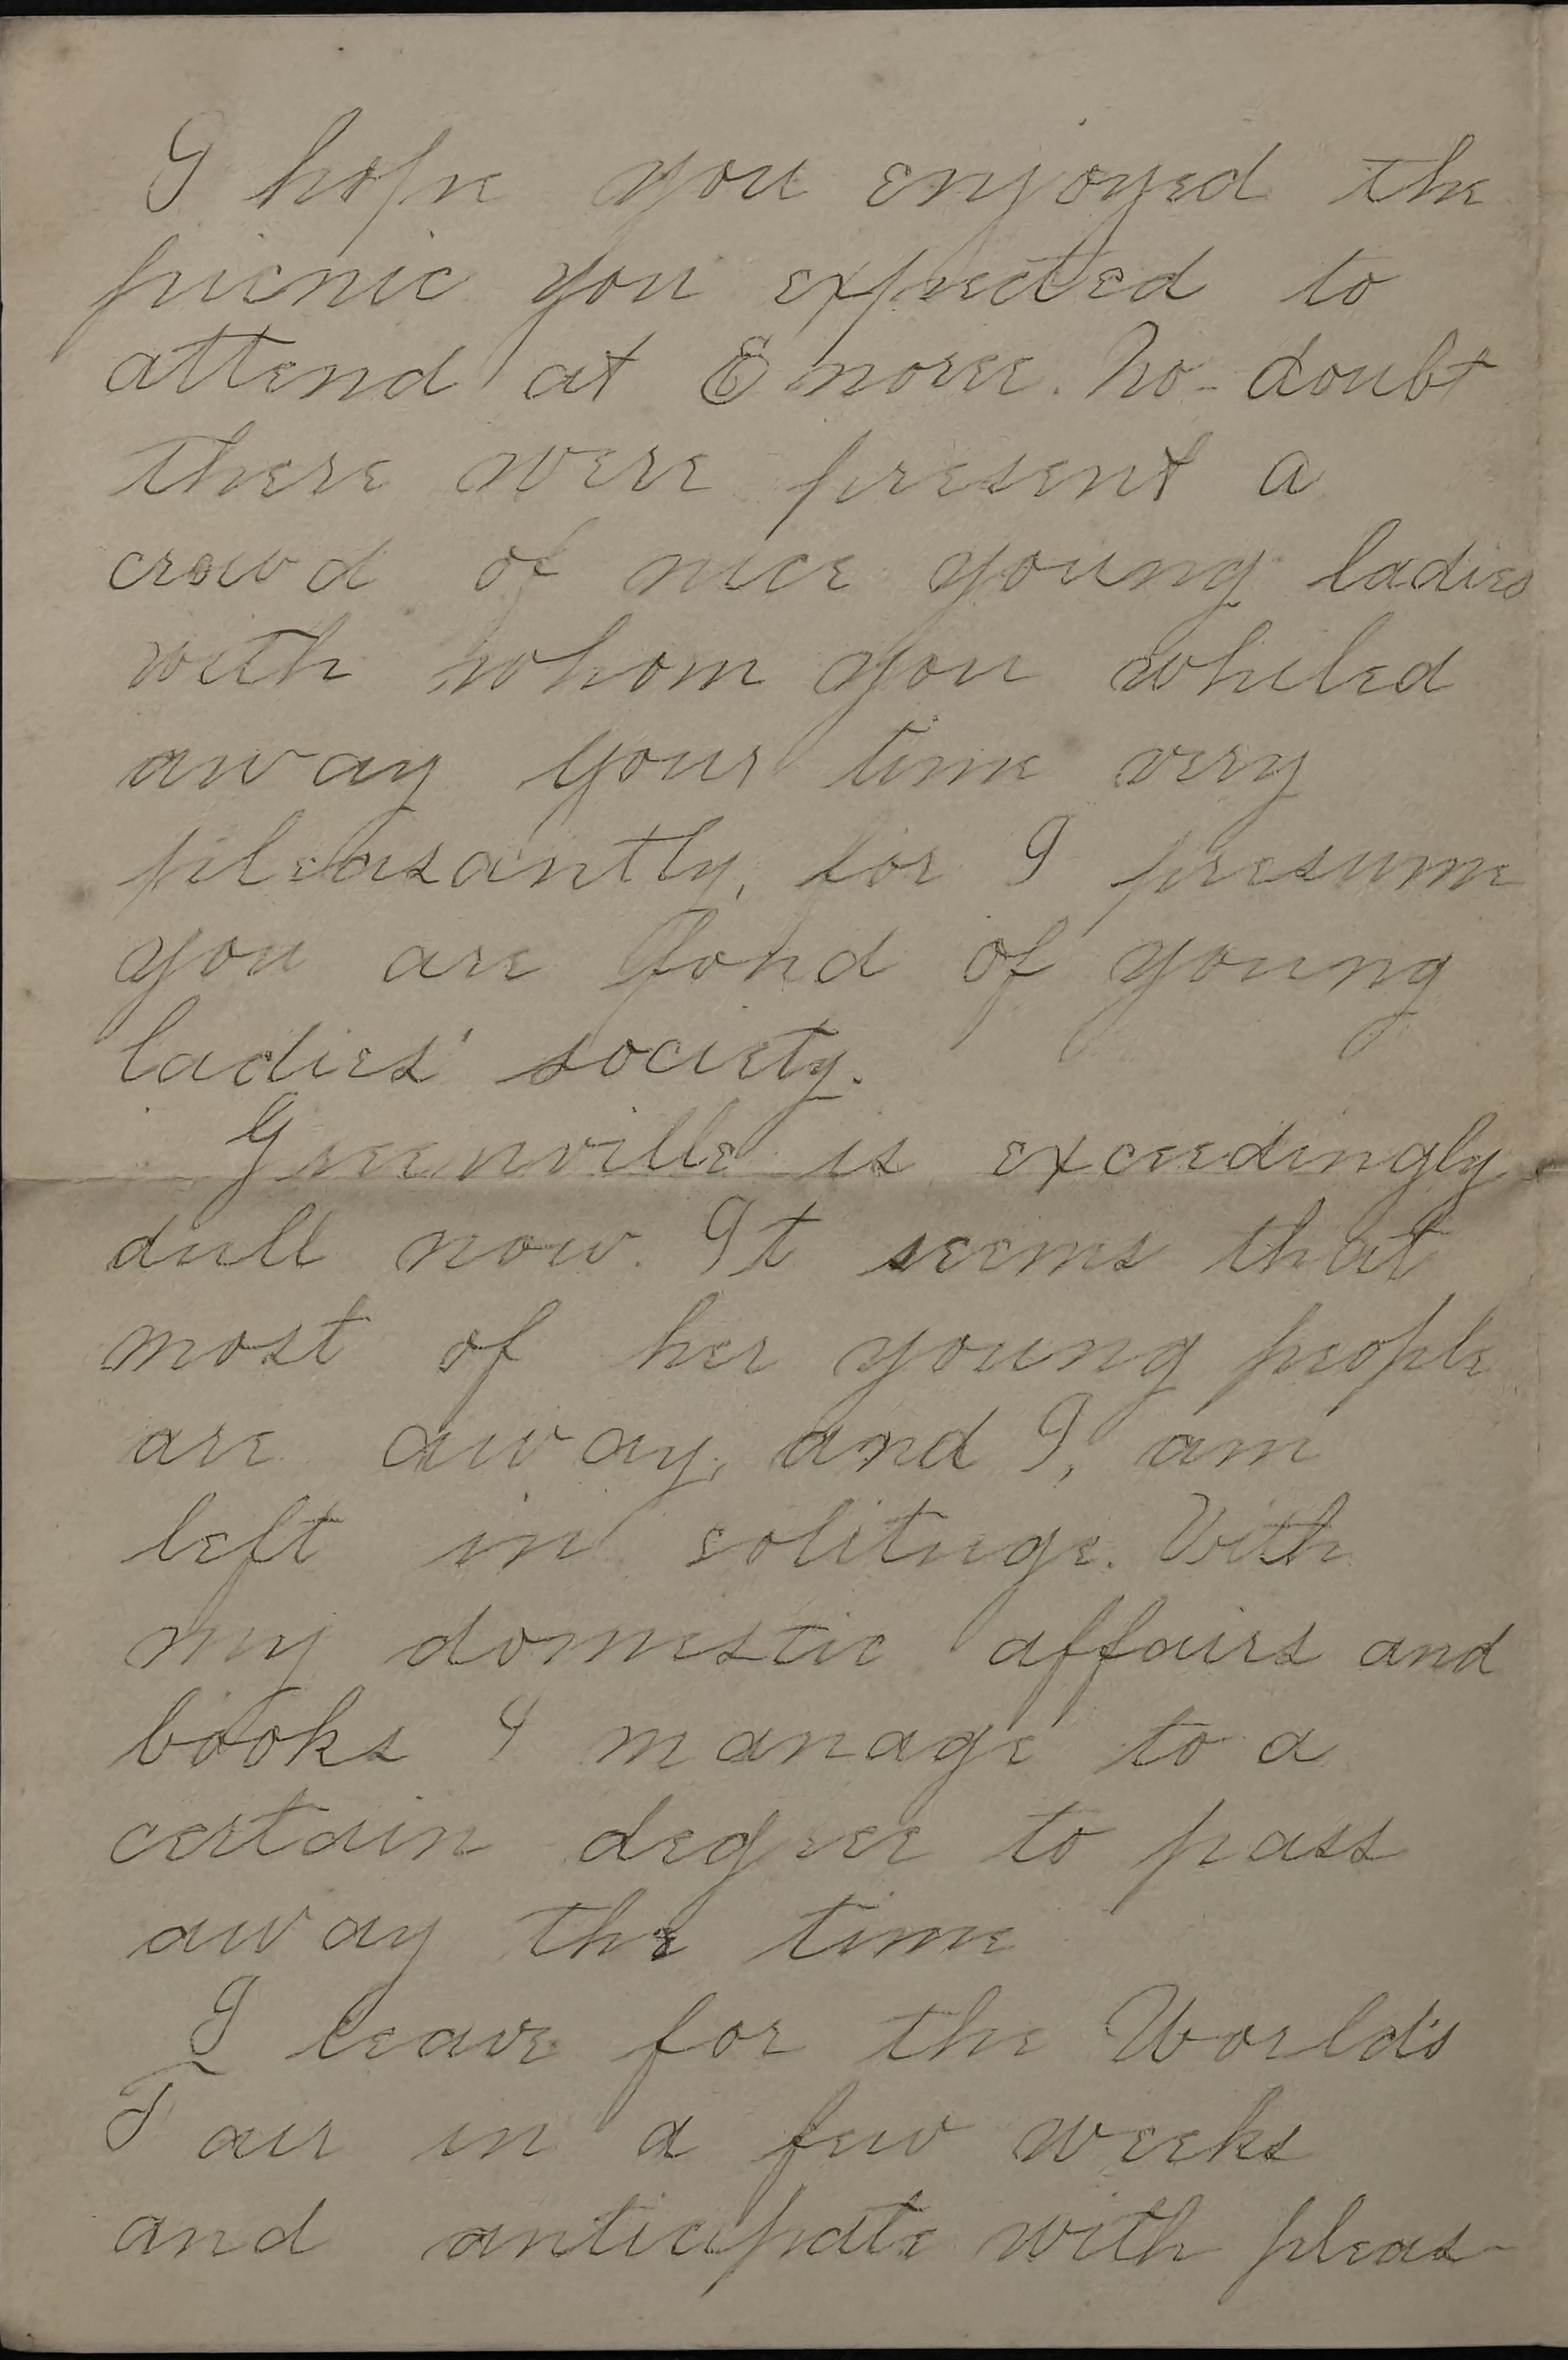 I hope you enjoyed the
picnic you expected to
attend at Enoree. No doubt
there were present a
crowd of nice young ladies
with whom you whiled
away your time very
pleasantly, for I presume
you are fond of young
ladies' society.
Greenville is exceedingly
dull now. It seems that
most of her young people
are away, and I, am
left in solitude. With
my domestic affairs and
books I manage to a
certain degree to pass
away the time
I leave for the World's
Fair in a few weeks
and anticipate with pleas-